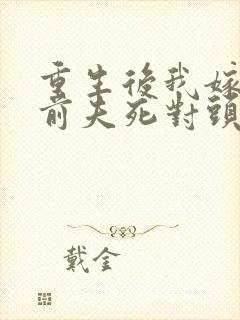 重生後我嫁
前夫死對頭
戴金